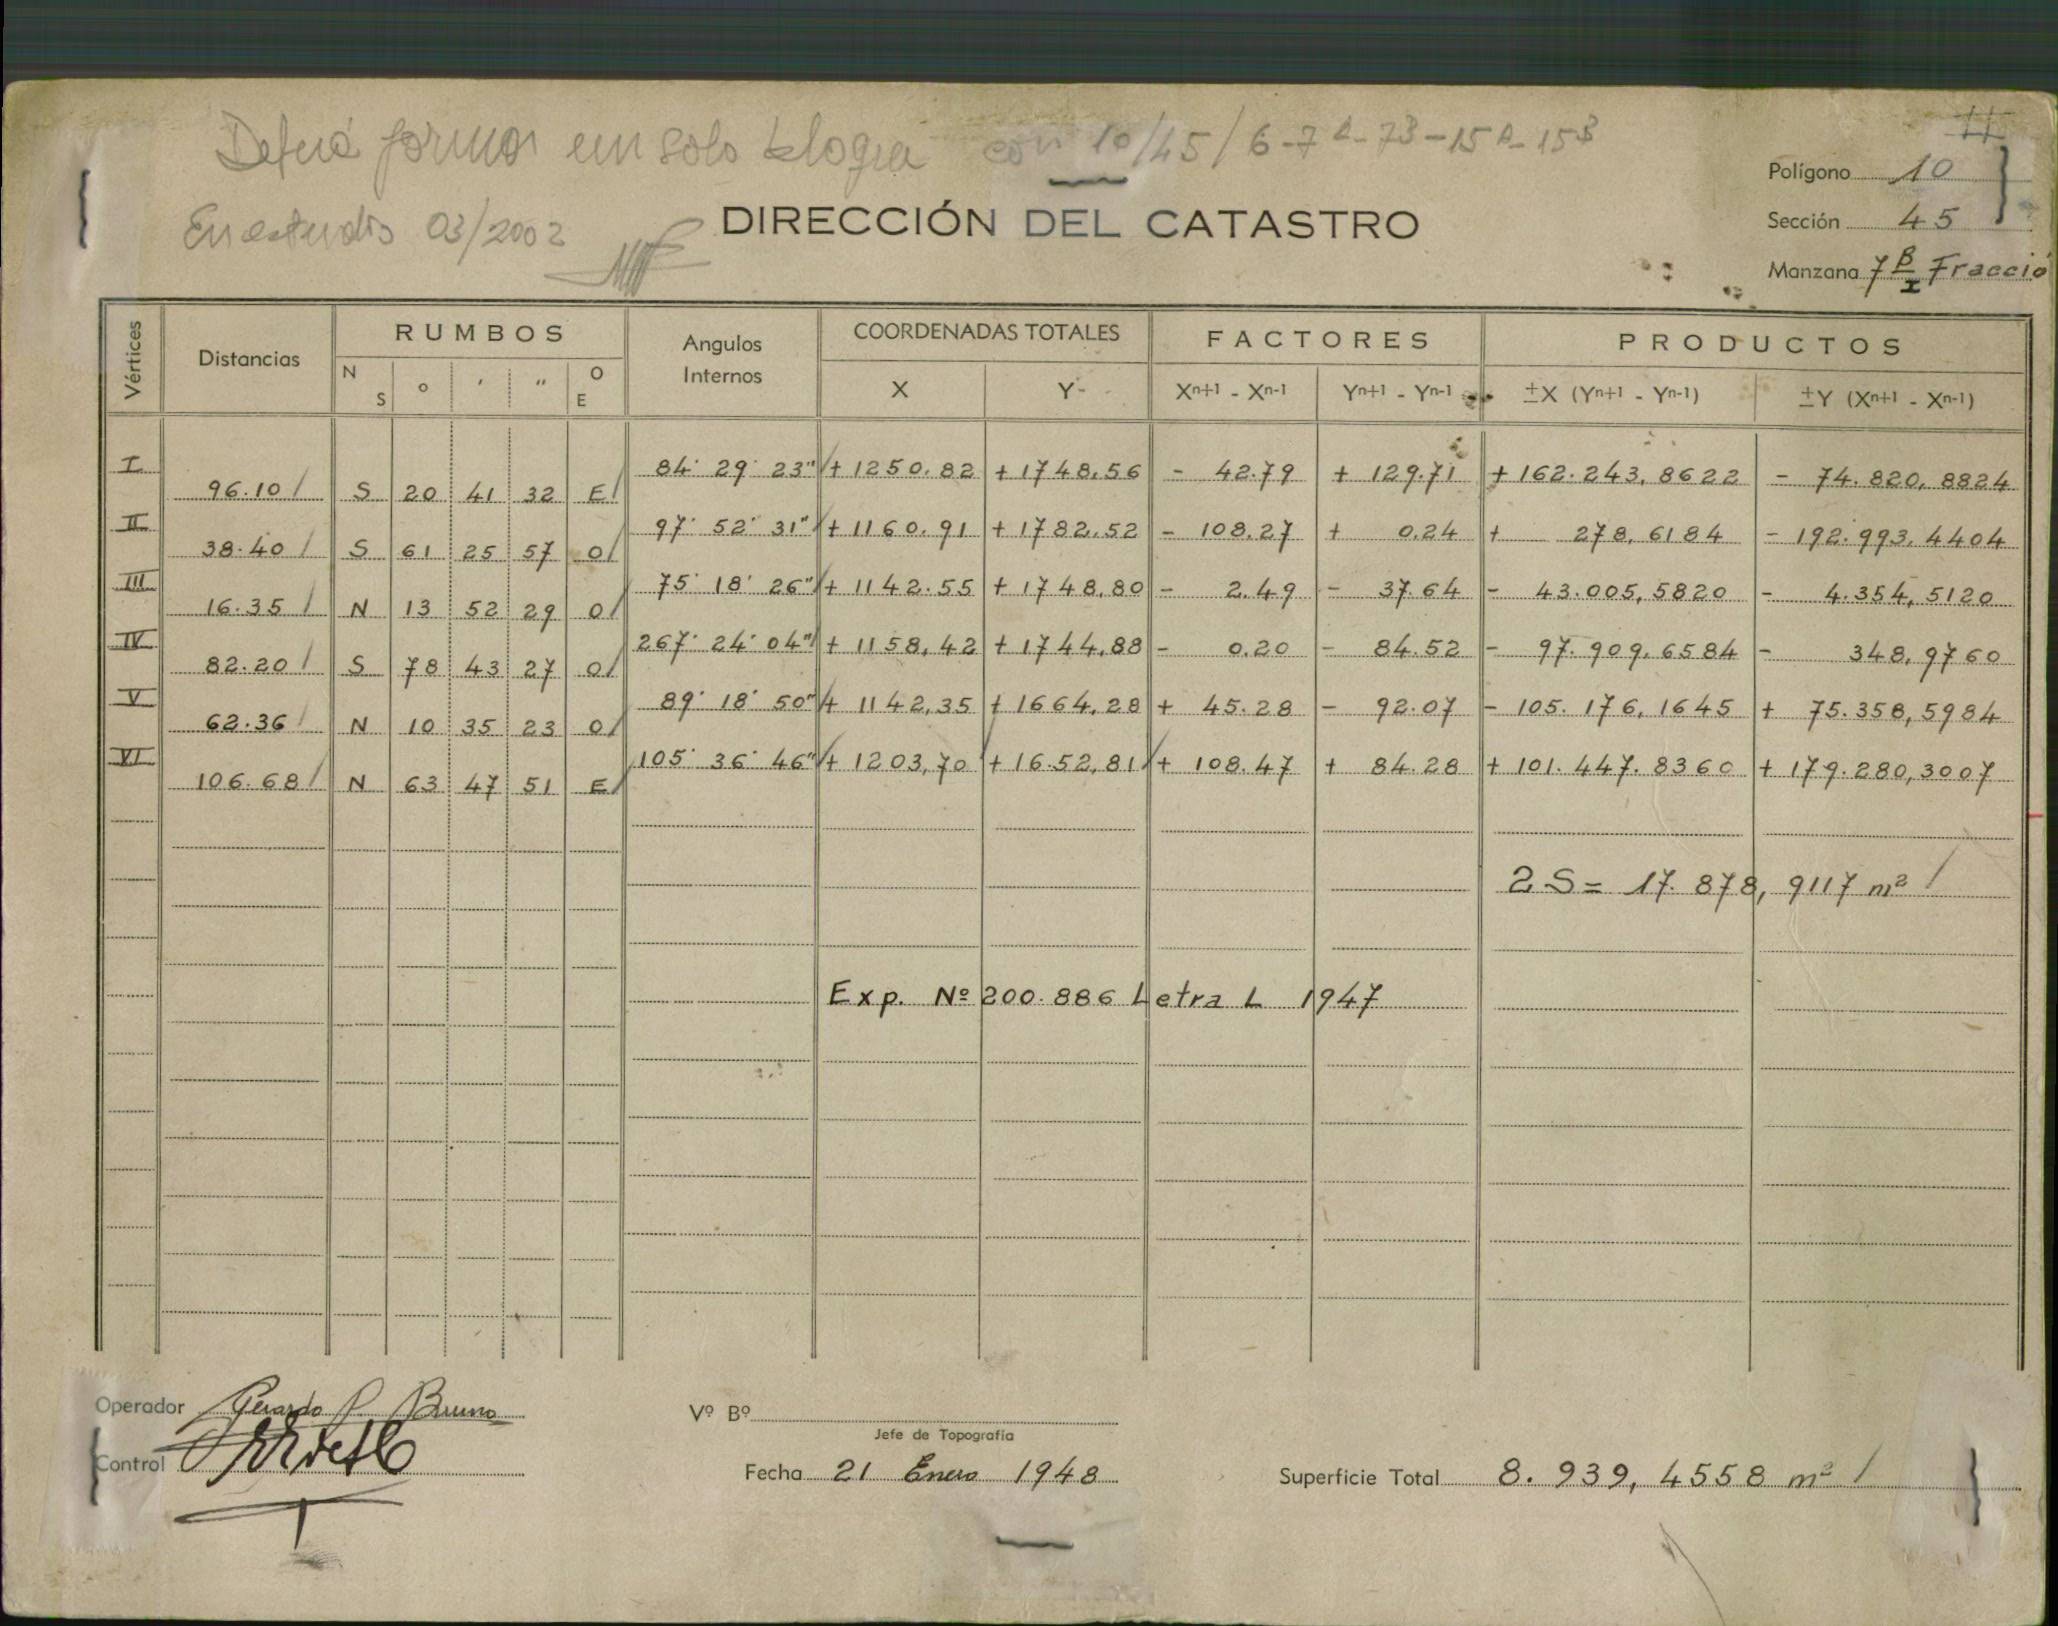 con 10/45/6-7A-7B-15A-15B
II
Polígono 10
En estudio 03/2002
DIRECCIÓN DEL CATASTRO
Sección 45
Manzana 7 B I Fracció
Vértices Distancias RUMBOS Angulos Internos COORDENADAS TOTALES FACTORES PRODUCTOS
N S ° ' " O E X Y Xn+1 - Xn-1 Yn+1 - Yn-1 ±X (Yn+1 - Yn-1) ±Y (Xn+1 - Xn-1)
I 84° 29' 23" + 1250.82 + 1748,56 - 42.79 + 129.71 + 162.243,8622 - 74.820,8824
96.10 S 20 41 32 E
II 97° 52' 31" + 1160.91 + 1782,52 - 108,27 + 0,24 + 278,6184 - 192.993,4404
38.40 S 61 25 57 O
III 75° 18' 26" + 1142.55 + 1748,80 - 2.49 - 37.64 - 43.005,5820 - 4.354,5120
16.35 N 13 52 29 O
IV 267° 24' 04" + 1158,42 + 1744,88 - 0.20 - 84.52 - 97.909,6584 - 348,9760
82.20 S 78 43 27 O
V 89° 18' 50" + 1142,35 + 1664,28 + 45.28 - 92.07 - 105.176,1645 + 75.358,5984
62.36 N 10 35 23 O
VI 105° 36' 46" + 1203,70 + 16.52,81 + 108.47 + 84.28 + 101.447.8360 + 179.280,3007
106.68 N 63 47 51 E
2S = 17.878,9117 m²
Exp. Nº 200.886 Letra L 1947
Operador Gerardo P. Bruno
Vº Bº
Jefe de Topografía
Control
Fecha 21 Enero 1948
Superficie Total 8.939,4558 m²